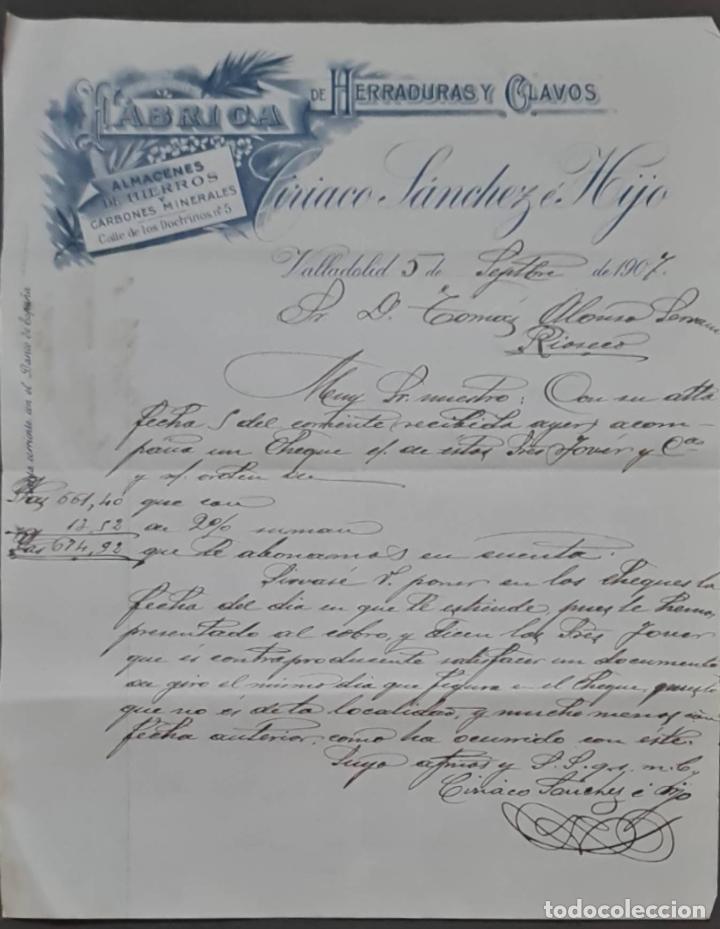 FÁBRICA DE HERRADURAS Y CLAVOS
ALMACENES
DE HIERROS
Y
CARBONES MINERALES
Calle de los Doctrinos, nº 5
Ciriaco Sánchez é Hijo
Valladolid 5 de Septbre de 1907.
Sr. D. Tomás Alonso
Rioseco
corriente con el Banco de España
Muy Sr. nuestro: Con su atta
fecha 5 del corriente, recibida ayer, acom-
paña un cheque c/. de estos Sres Jover y Cª
y n/. orden de
Ptas 661,40 que con
13,52 su 2% suman
Ptas 674,92 que le abonamos en cuenta.
Sirvase V. poner en los cheques la
fecha del dia en que le estiende, pues le hemos
presentado al cobro, y dicen los Sres Jover
que és contraproducente satisfacer un documento
de giro el mismo dia que figura en el cheque, puesto
que no és de la localidad, y mucho menos con
fecha anterior, como ha ocurrido con este.
Suyo afmos y S. S. q. s. m. b.
Ciriaco Sánchez é Hijo
todocoleccion.net